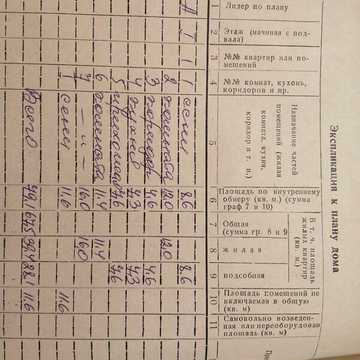 Экспликация к плану дома
1 Литер по плану
2 Этаж (начиная с подвала)
3 №№ квартир или помещений
4 №№ комнат, кухонь, коридоров и пр.
5 Назначение частей помещений (жилая комната, кухня, коридор и т. п.)
6 Площадь по внутреннему обмеру (кв. м.) (сумма граф 7 и 10)
В т. ч. площадь жилых квартир (кв. м.)
7 Общая (сумма гр. 8 и 9
8 жилая
9 подсобная
10 Площадь помещений не включаемая в общую (кв. м)
11 Самовольно возведен ная или переоборудован площадь (кв. м)
1 сени 8.6 8.6
2 12.0 12.0
3 коридор 4.6 4.6
4 кухня 4.2 4.2
5 прихожая
6 11.4 11.4
7 -"- 16.0 16.0
сени 11.6 11.6
Всего 74.1 62.5 39.4 23.1 11.6